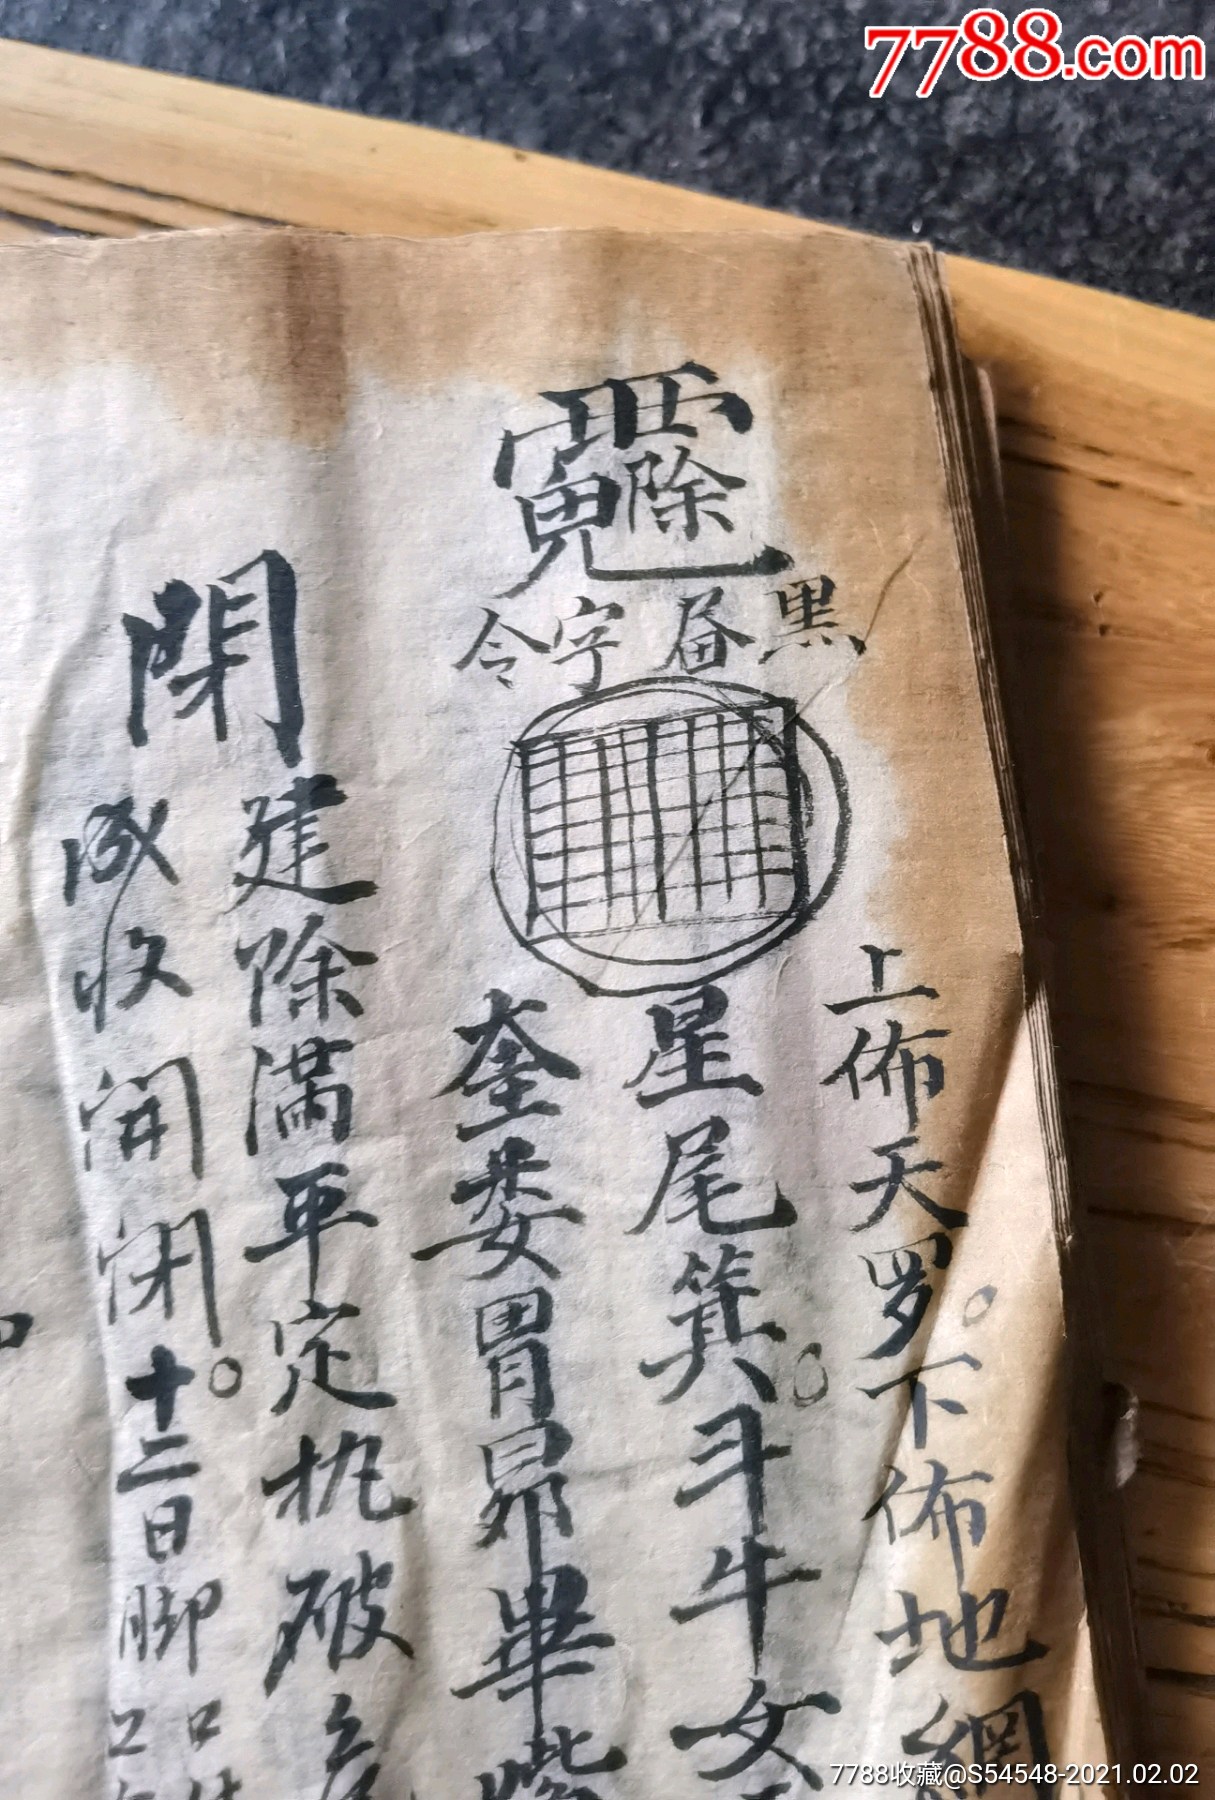 7788.com
除
黑
字令
上佈天罗。下佈地網
星尾箕。斗牛女
奎娄胃昴畢觜
閉
建除滿平定执破
成收開闭。十二日脚
7788收藏@S54548-2021.02.02